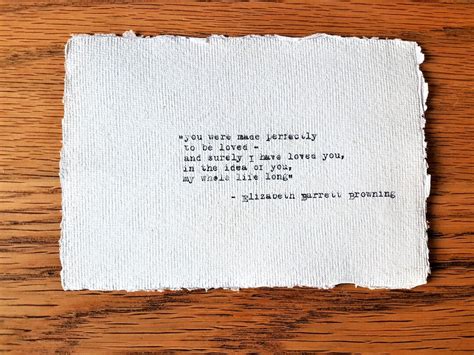 "you were made perfectly
to be loved -
and surely I have loved you,
in the idea of you,
my whole life long"
- Elizabeth Barrett Browning